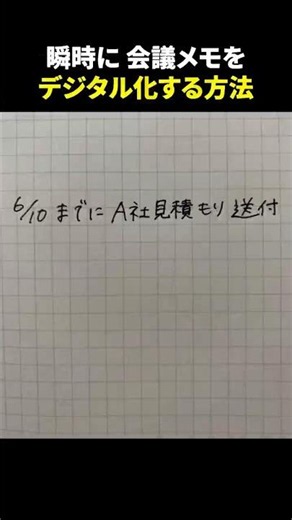 瞬時に 会議メモを
デジタル化する方法
6/10 までに A社見積もり 送付